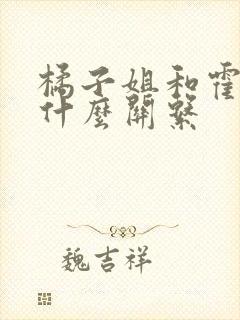 橘子姐和霍
什麼關繫
魏吉祥